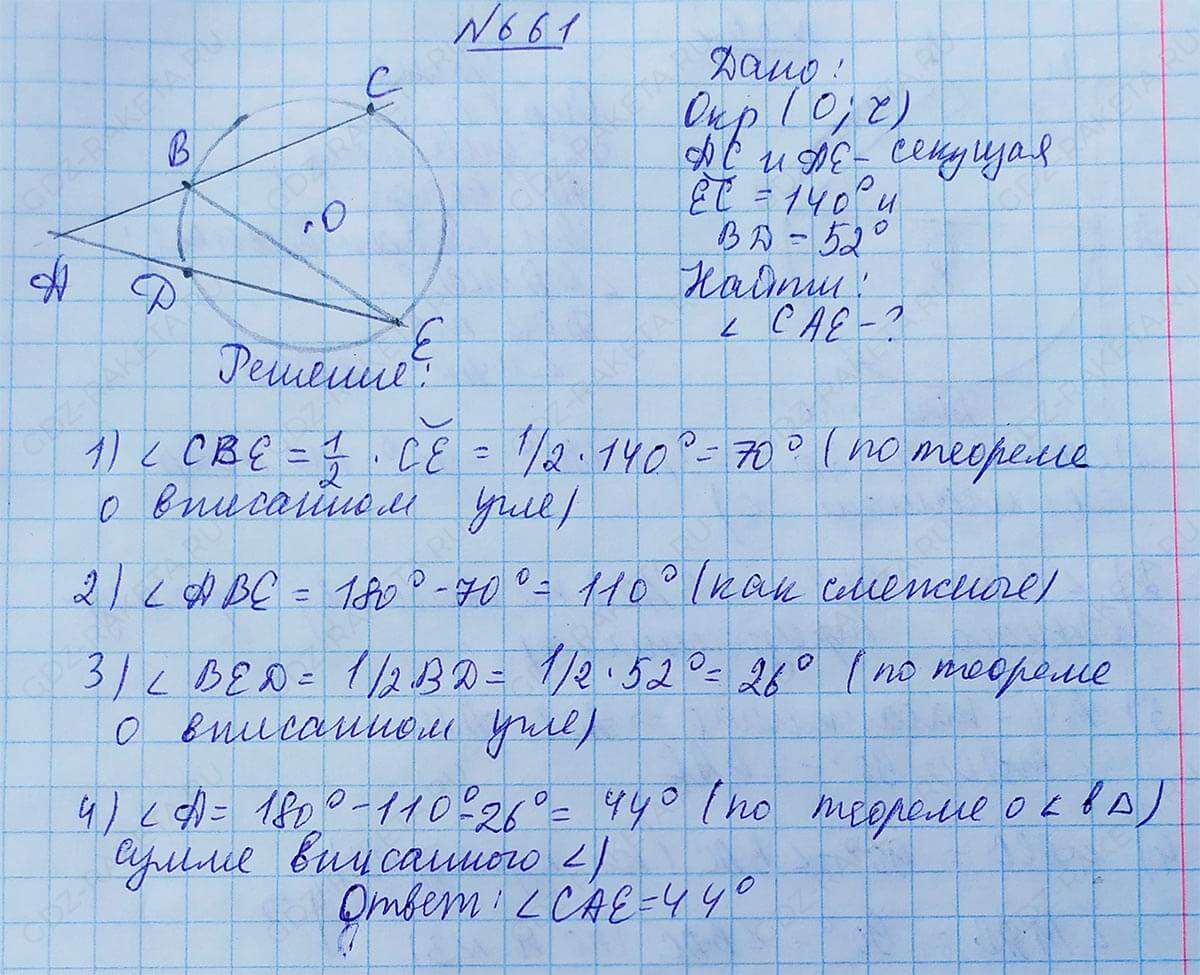 №661
C
B
O
A
D
E
Дано:
Окр (O; r)
AC и AE - секущая
EC = 140° и
BD = 52°
Найти:
< CAE - ?
Решение:
1) < CBE = 1/2 · C͝E = 1/2 · 140° = 70° (по теореме
о вписанном угле)
2) < ABE = 180° - 70° = 110° (как смежные)
3) < BED = 1/2 BD = 1/2 · 52° = 26° (по теореме
о вписанном угле)
4) < A = 180° - 110° - 26° = 44° (по теореме о < в Δ)
сумме вписанного <)
Ответ: < CAE = 44°
GDZ-RAKETA.RU